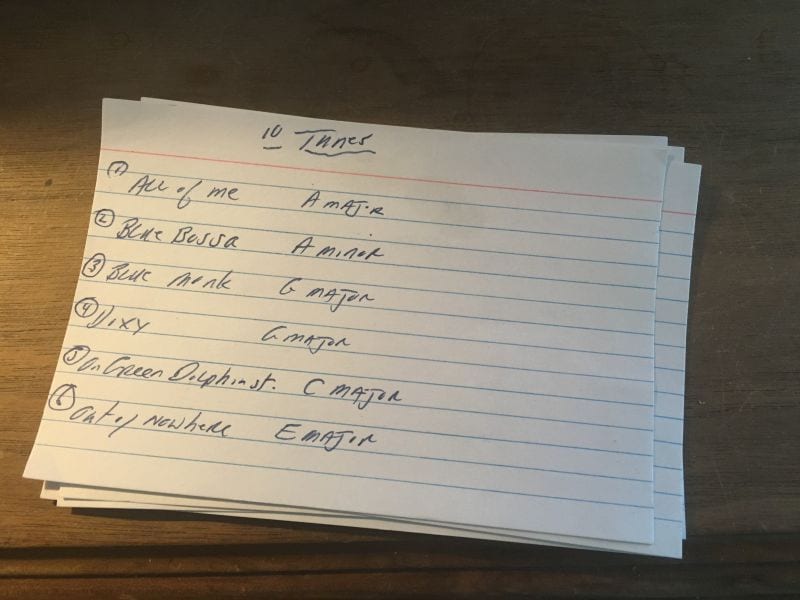 10 Tunes
① All of me A major
② Blue Bossa A minor
③ Blue Monk G major
④ Doxy G major
⑤ On Green Dolphin st. C major
⑥ Out of Nowhere E major